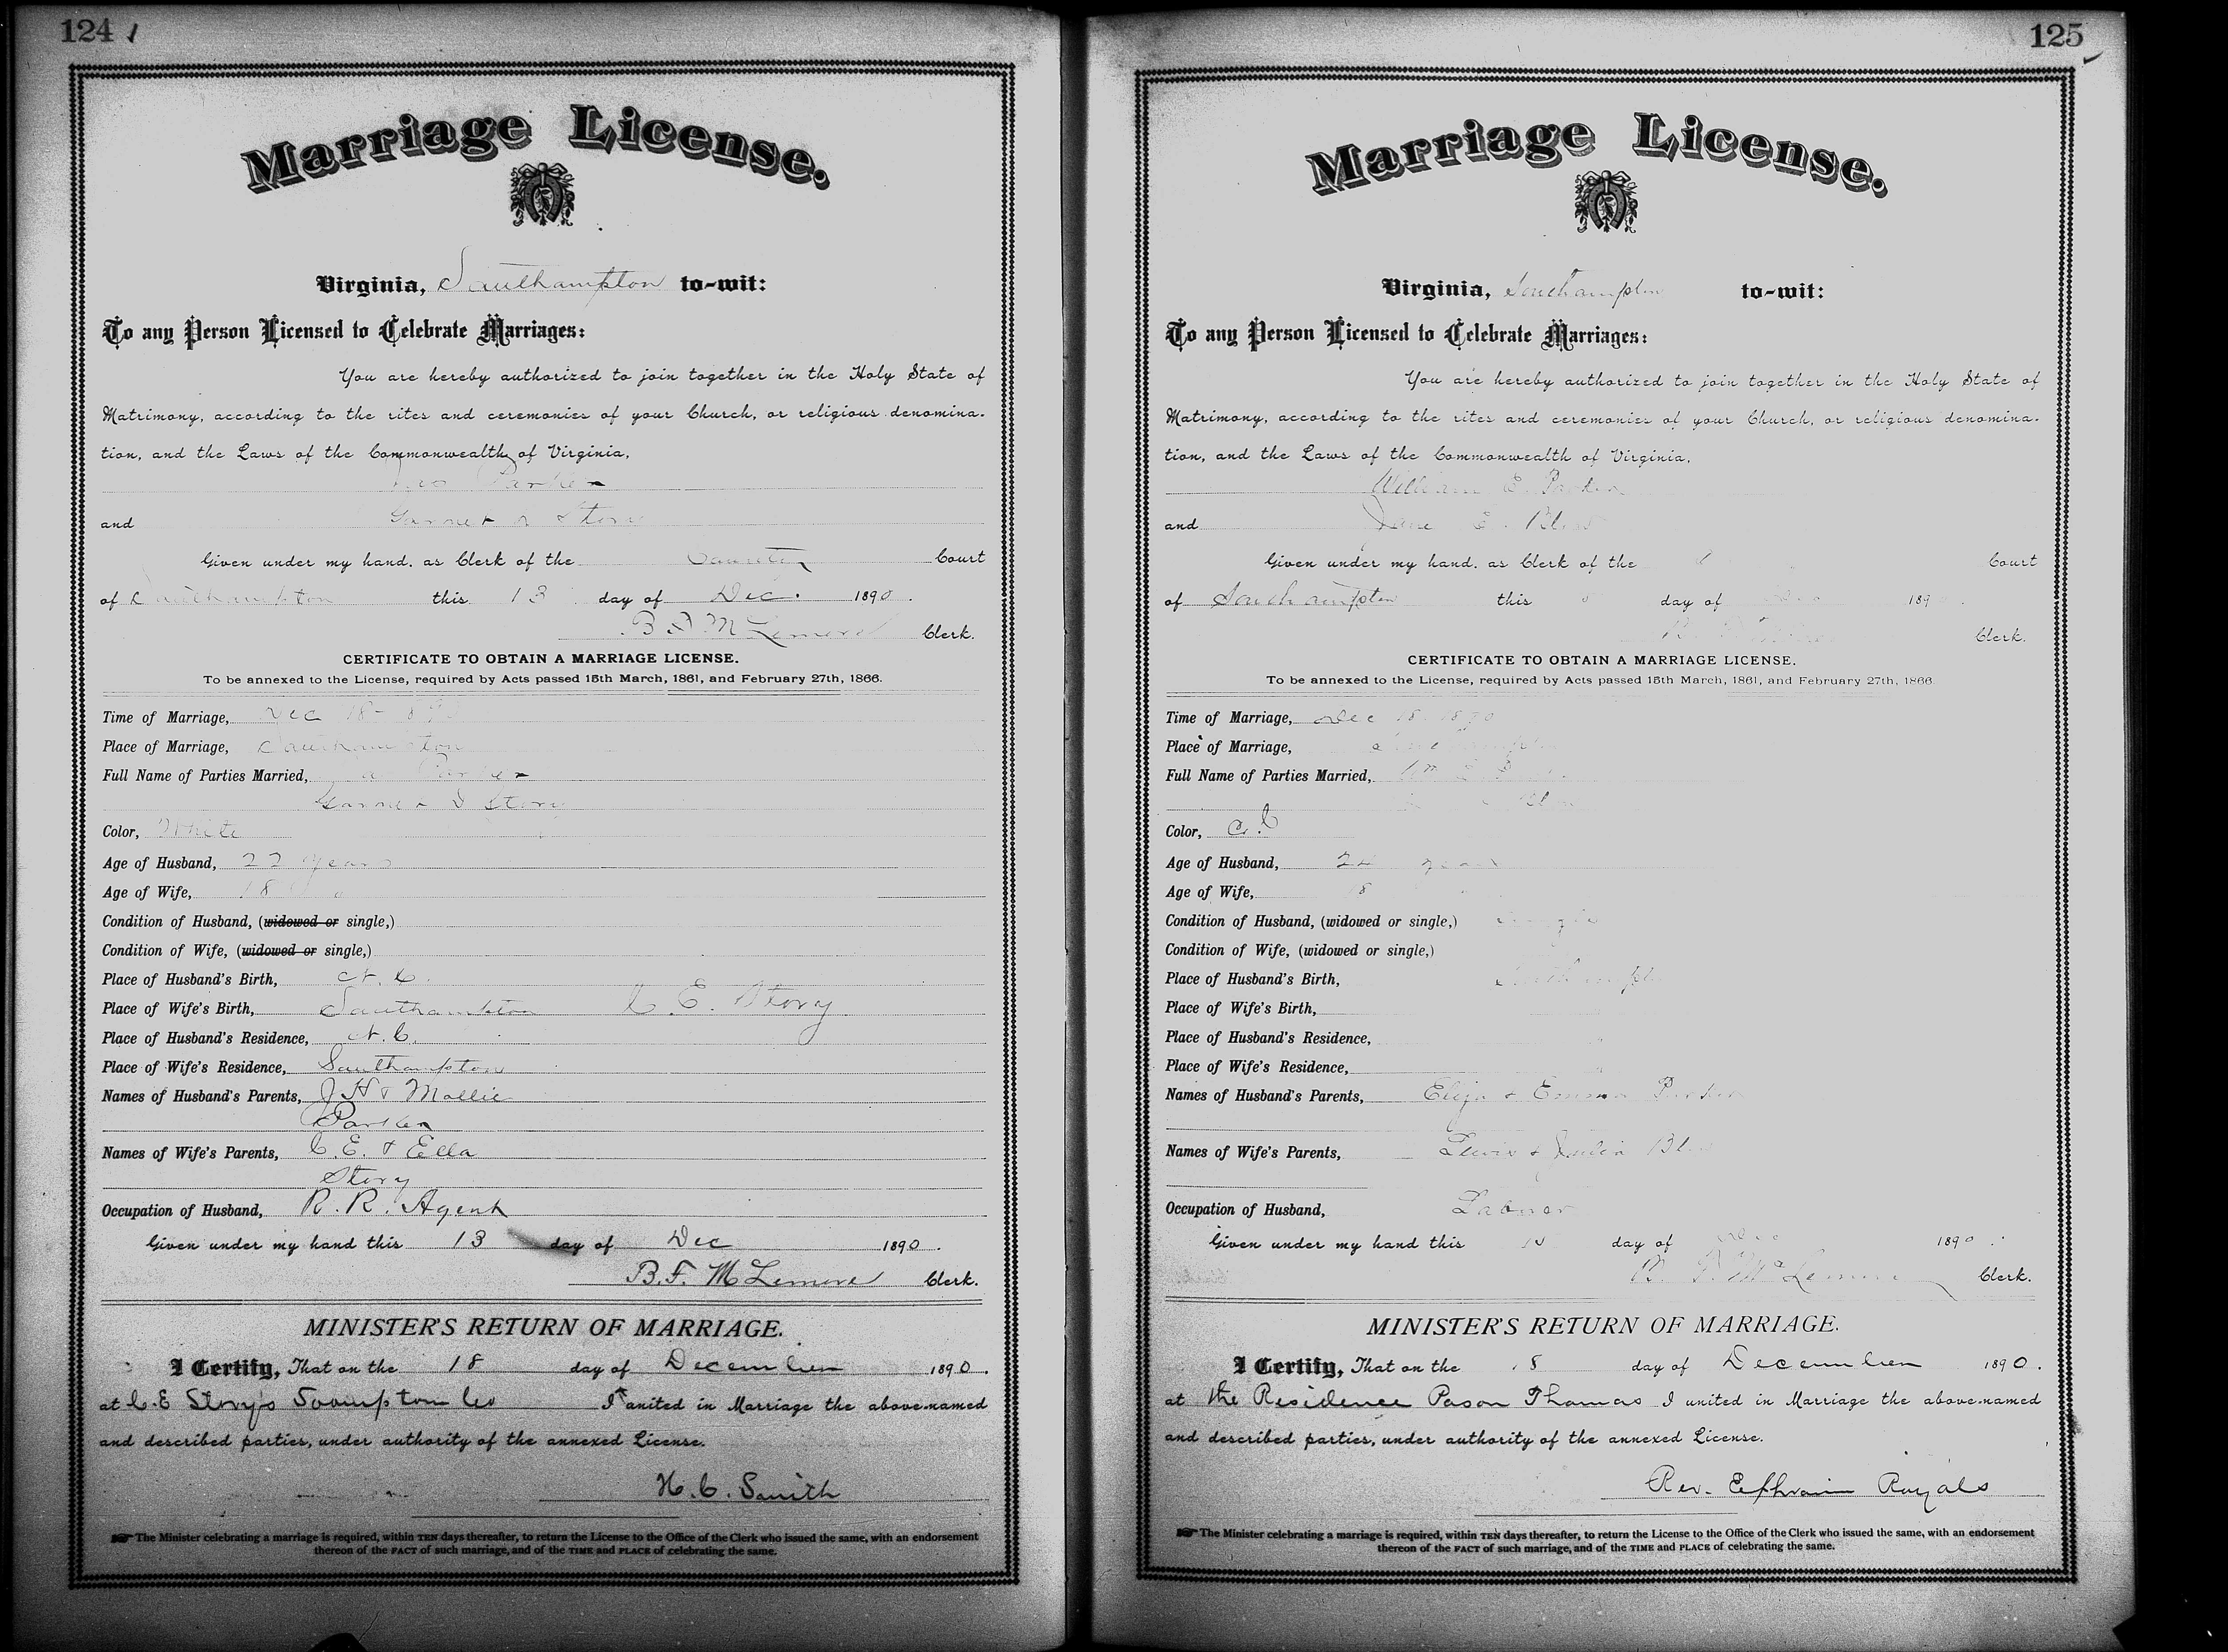 124
Marriage License.
Virginia, Southampton to-wit:
To any Person Licensed to Celebrate Marriages:
You are hereby authorized to join together in the Holy State of
Matrimony, according to the rites and ceremonies of your Church, or religious denomina-
tion, and the Laws of the Commonwealth of Virginia,
Parker
and Story
Given under my hand, as Clerk of the County Court
of Southampton this 13 day of Dec. 1890.
B. F. McLemore Clerk.
CERTIFICATE TO OBTAIN A MARRIAGE LICENSE.
To be annexed to the License, required by Acts passed 15th March, 1861, and February 27th, 1866.
Time of Marriage, Dec 18- 890
Place of Marriage, Southampton
Full Name of Parties Married, Parker
Story
Color, White
Age of Husband, 22 years
Age of Wife, 18
Condition of Husband, (widowed or single,)
Condition of Wife, (widowed or single,)
Place of Husband's Birth, N. C.
Place of Wife's Birth, Southampton C. E. Story
Place of Husband's Residence, N. C.
Place of Wife's Residence, Southampton
Names of Husband's Parents, J H & Mollie
Parker
Names of Wife's Parents, C. E. & Ella
Story
Occupation of Husband, R. R. Agent
Given under my hand this 13 day of Dec 1890.
B. F. McLemore Clerk.
MINISTER'S RETURN OF MARRIAGE.
I Certify, That on the 18 day of December 1890.
at C. E Story's Soampton Co I united in Marriage the above-named
and described parties, under authority of the annexed License.
H. C. Smith
The Minister celebrating a marriage is required, within TEN days thereafter, to return the License to the Office of the Clerk who issued the same, with an endorsement
thereon of the FACT of such marriage, and of the TIME and PLACE of celebrating the same.
125
Marriage License.
Virginia, Southampton to-wit:
To any Person Licensed to Celebrate Marriages:
You are hereby authorized to join together in the Holy State of
Matrimony, according to the rites and ceremonies of your Church, or religious denomina-
tion, and the Laws of the Commonwealth of Virginia,
William E. Parker
and Jane E.
Given under my hand, as Clerk of the Court
of Southampton this day of 189
Clerk.
CERTIFICATE TO OBTAIN A MARRIAGE LICENSE.
To be annexed to the License, required by Acts passed 15th March, 1861, and February 27th, 1866.
Time of Marriage, Dec 18 1890
Place of Marriage,
Full Name of Parties Married, Wm
Color,
Age of Husband, 24 years
Age of Wife, 18
Condition of Husband, (widowed or single,) Single
Condition of Wife, (widowed or single,)
Place of Husband's Birth, Southampt
Place of Wife's Birth,
Place of Husband's Residence,
Place of Wife's Residence,
Names of Husband's Parents, Elija & Emma Parker
Names of Wife's Parents, Lewis & Julia
Occupation of Husband, Laborer
Given under my hand this day of 1890.
B. F. McLemore Clerk.
MINISTER'S RETURN OF MARRIAGE.
I Certify, That on the 18 day of December 1890.
at the Residence Pason Thomas I united in Marriage the above-named
and described parties, under authority of the annexed License.
Rev. Ephraim Royals
The Minister celebrating a marriage is required, within TEN days thereafter, to return the License to the Office of the Clerk who issued the same, with an endorsement
thereon of the FACT of such marriage, and of the TIME and PLACE of celebrating the same.